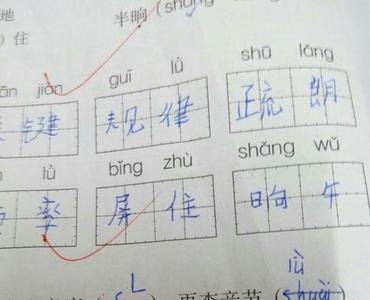 地 半晌(shǎng
)住
jiàn guī lǜ shū lǎng
键 规律 疏朗
lǜ bǐng zhù shǎng wǔ
率 屏住 晌午
lǜ
L 再查音节(